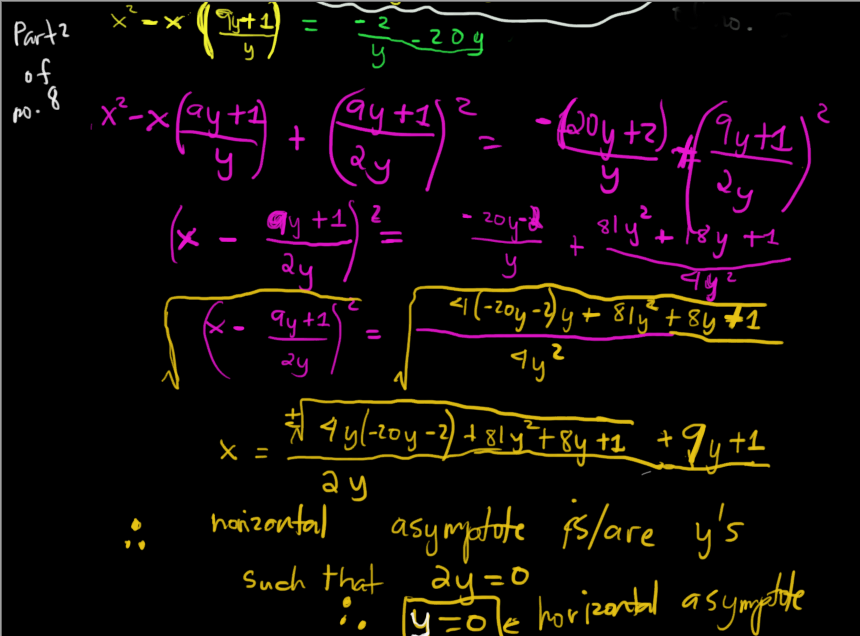 Part 2
of
no. 8
x² - x (9y+1 / y) = -2/y - 20y
x² - x (9y+1 / y) + (9y+1 / 2y)² = -(20y+2) / y + (9y+1 / 2y)²
(x - 9y+1 / 2y)² = -20y-2 / y + 81y² + 18y + 1 / 4y²
√(x - 9y+1 / 2y)² = √(4(-20y-2)y + 81y² + 8y + 1 / 4y²)
x = ±√(4y(-20y-2) + 81y² + 8y + 1) + 9y+1 / 2y
∴ horizontal asymptote is/are y's
such that 2y = 0
∴ y = 0 ← horizontal asymptote